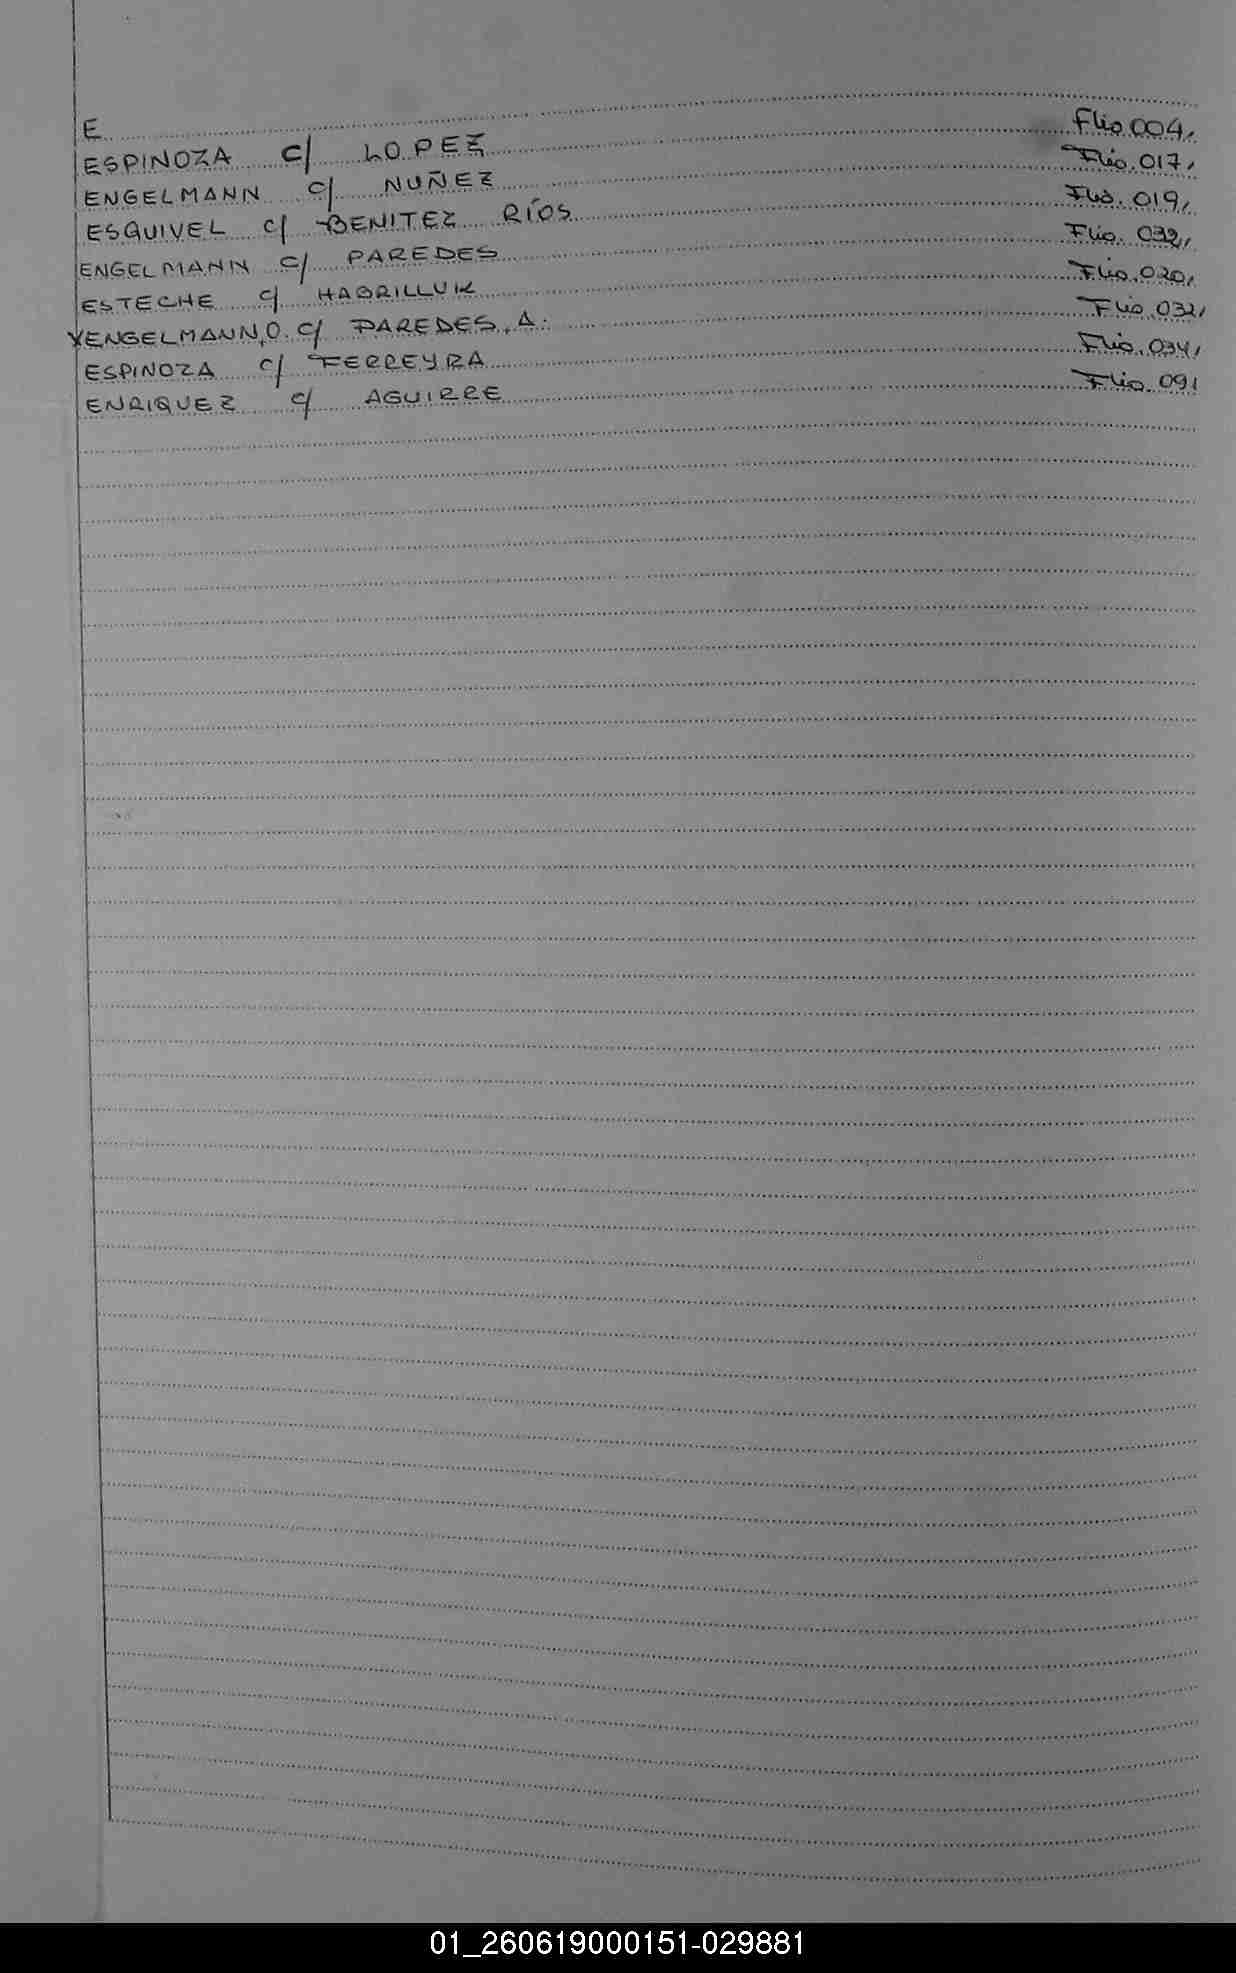 E
ESPINOZA c/ LOPEZ Flio. 004,
ENGELMANN c/ NUÑEZ Flio. 017,
ESQUIVEL c/ BENITEZ RÍOS Flio. 019,
ENGELMANN c/ PAREDES Flio. 032,
ESTECHE c/ HABRILLUK Flio. 020,
ENGELMANN, O. c/ PAREDES, A. Flio. 032,
ESPINOZA c/ FERREYRA Flio. 034,
ENRIQUEZ c/ AGUIRRE Flio. 091
01_260619000151-029881